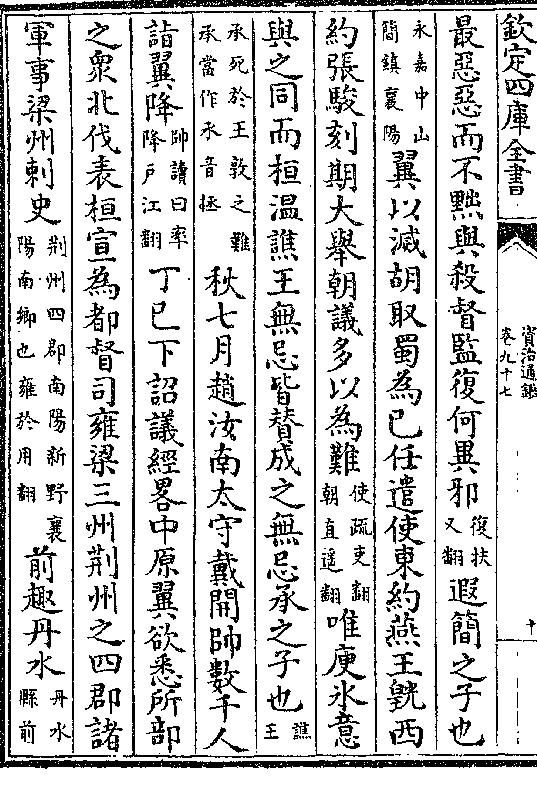 欽定四庫全書
資治通鑑
卷九十七
十
最惡惡而不黜與殺督監復何異邪復扶又翻遐簡之子也
永嘉中山簡鎮襄陽翼以滅胡取蜀為已任遣使東約燕王皝西
約張駿刻期大舉朝議多以為難使疏吏翻朝直遥翻唯庾氷意
與之同而桓温譙王無忌皆賛成之無忌承之子也譙王
承死於王敦之難承當作氶音拯秋七月趙汝南太守戴開帥數千人
詣翼降帥讀曰率降戶江翻丁巳下詔議經畧中原翼欲悉所部
之衆北伐表桓宣為都督司雍梁三州荆州之四郡諸
軍事梁州刺史荆州四郡南陽新野襄陽南鄉也雍於用翻前趣丹水丹水縣前